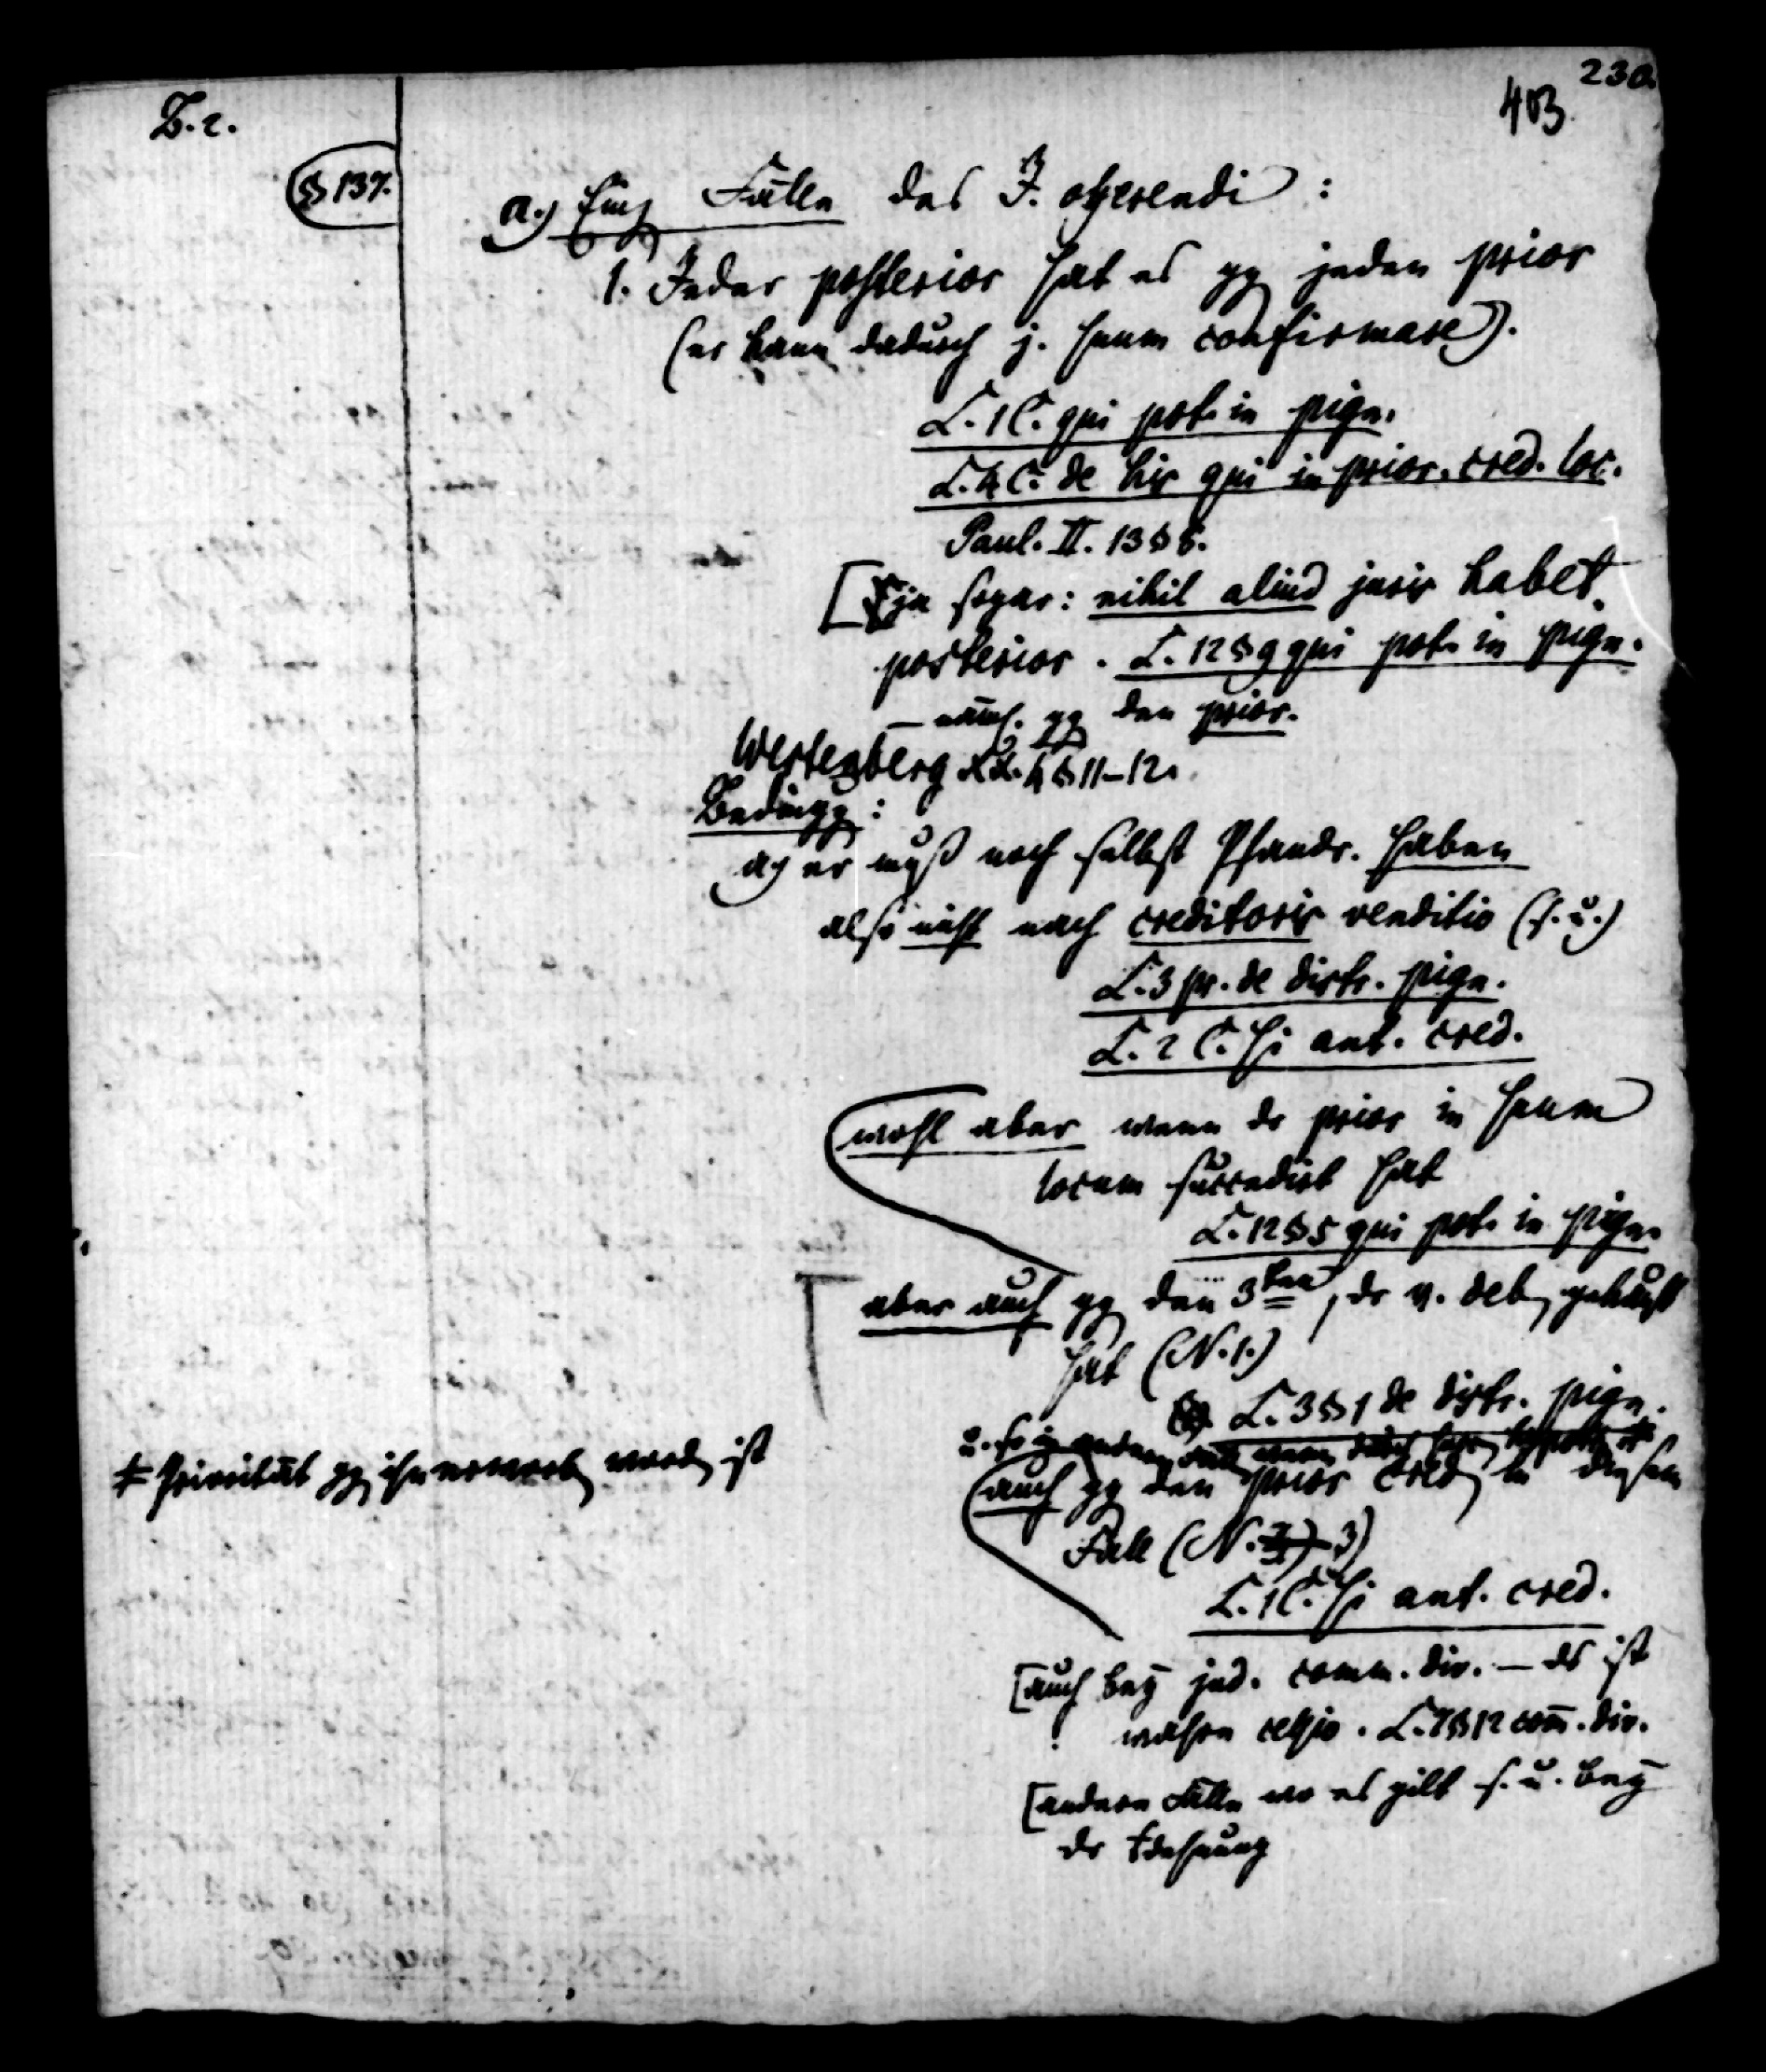 230.
403.
Z. 2.
§ 137.
a.) Einz Fälle des J. offerendi :
1. Jeder posterior hat es gg jeden prior
(er kann dadurch j. suum confirmare).
L. 1 C. qui pot. in pign.
L. 4 C. de his qui in prior. cred. loc.
Paul. II. 13 § 8.
[ja sogar: nihil aliud juris habet
posterior. L. 12 § 9 qui pot. in pign.
— näml. gg den prior.
Westenberg 4 § 11–12.
Bedingg :
a) er muß noch selbst Pfandr. haben
also nicht nach creditoris venditio (s. u.)
L. 3 pr. de distr. pign.
L. 2 C. si ant. cred.
wohl aber wenn dr prior in suum
locum succedirt hat
L. 12 § 5 qui pot. in pign.
aber auch gg den 3ten, dr v. deb gekauft
hat (N. 1.)
L. 3 § 1 de distr. pign.
auch gg den prior cred in diesem
Fall (N. 3)
L. 1 C. si ant. cred.
‡ Priorität gg ihn erworb word ist
[auch bey jud. comm. div. — ds ist
wahre cessio. L. 7 § 12 com̄. div.
[andere Fälle wo es gilt s. u. bey
dr